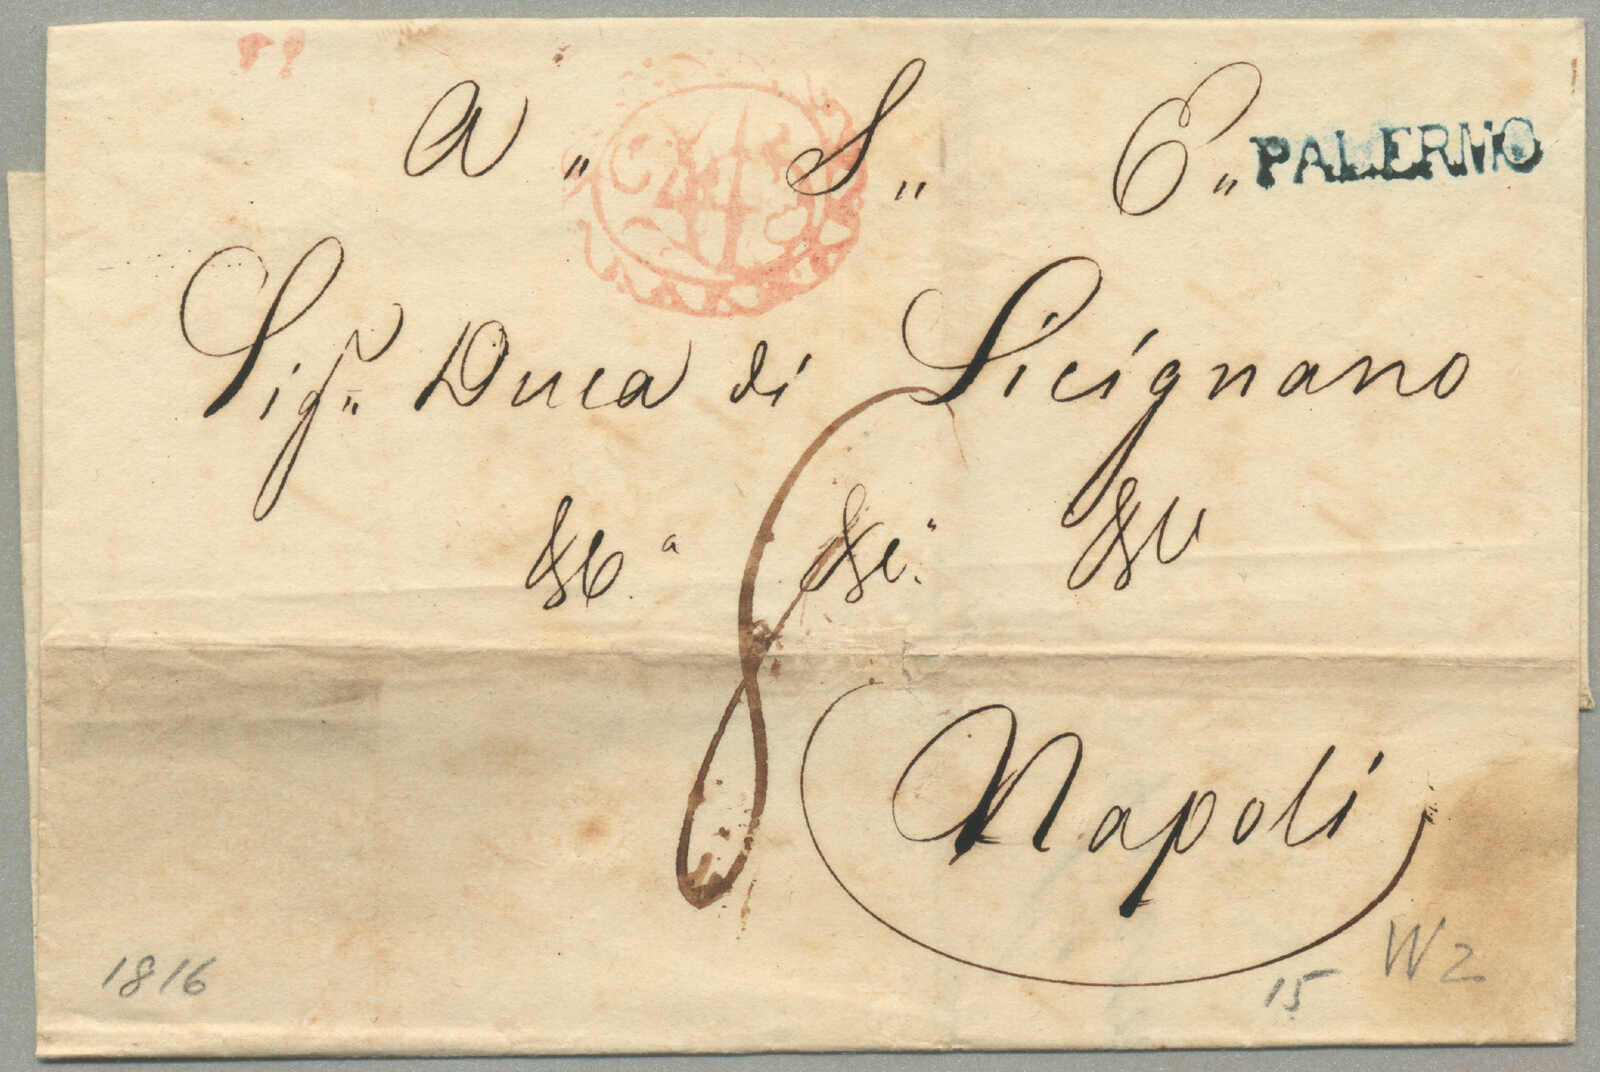 A " S " E " PALERMO
Sigr. Duca di Sicignano
&c.a &c.a &c
8
Napoli
1816
15 W2